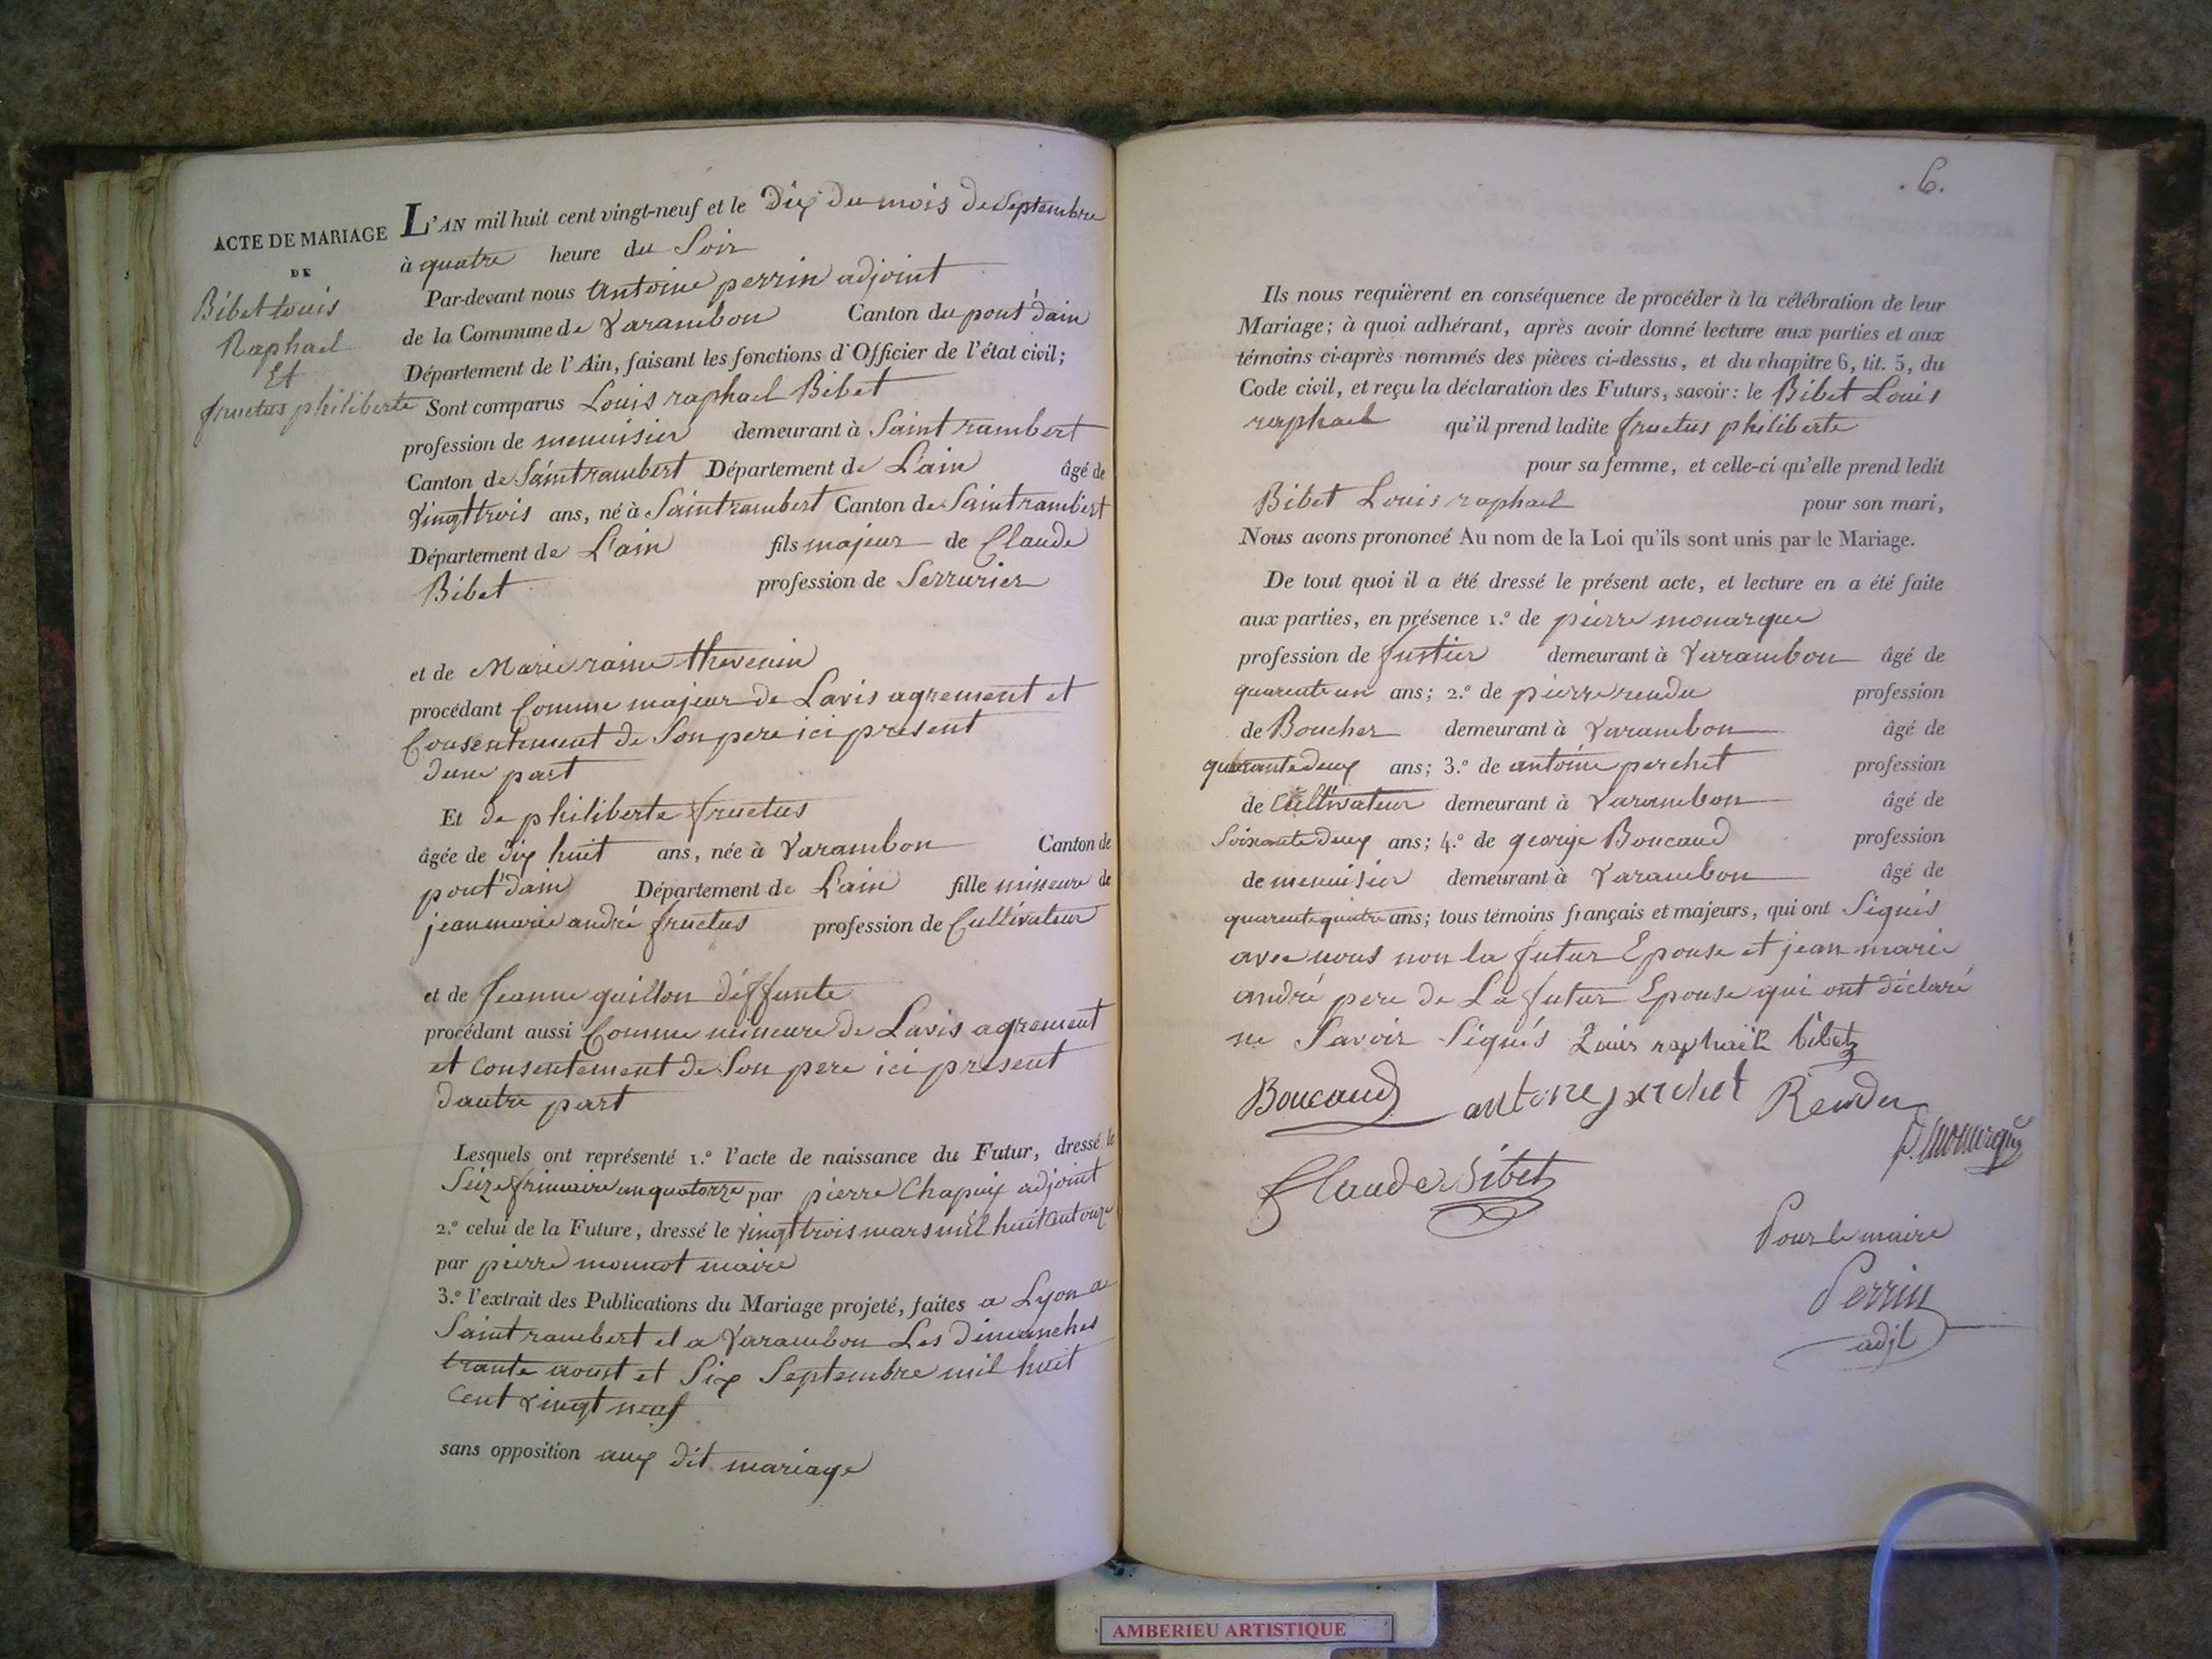 ACTE DE MARIAGE
DE
Bibet Louis
Raphael
Et
fructus philiberte
L'AN mil huit cent vingt-neuf et le Dix Du mois De Septembre
à quatre heure du Soir
Par-devant nous Antoine perrin adjoint
de la Commune de Varambon Canton du pont d'ain
Département de l'Ain, faisant les fonctions d'Officier de l'état civil;
Sont comparus Louis raphael Bibet
profession de menuisier demeurant à Saint rambert
Canton de Saint rambert Département de L'ain âgé de
Vingt trois ans, né à Saint rambert Canton de Saint rambert
Département de L'ain fils majeur de Claude
Bibet profession de Serrurier
et de Marie raine thevenin
procédant Comme majeur de Lavis agrement et
Consentement de Son pere ici present
dune part
Et de philiberte fructus
âgée de dix huit ans, née à Varambon Canton de
pont d'ain Département de L'ain fille mineure de
jean marie andré fructus profession de Cultivateur
et de Jeanne guillon déffunte
procédant aussi Comme mineure de Lavis agrement
et Consentement de Son pere ici present
dautre part
Lesquels ont représenté 1.º l'acte de naissance du Futur, dressé le
Seize frimaire an quatorze par pierre Chapuix adjoint
2.º celui de la Future, dressé le vingt trois mars mil huit cent onze
par pierre monnot maire
3.º l'extrait des Publications du Mariage projeté, faites a Lyon a
Saint rambert et a Varambon Les Dimanches
trante aoust et Six Septembre mil huit
Cent vingt neuf
sans opposition aux dit mariage
.6.
Ils nous requièrent en conséquence de procéder à la célébration de leur
Mariage; à quoi adhérant, après avoir donné lecture aux parties et aux
témoins ci-après nommés des pièces ci-dessus, et du chapitre 6, tit. 5, du
Code civil, et reçu la déclaration des Futurs, savoir: le Bibet Louis
raphael qu'il prend ladite fructus philiberte
pour sa femme, et celle-ci qu'elle prend ledit
Bibet Louis raphael pour son mari,
Nous avons prononcé Au nom de la Loi qu'ils sont unis par le Mariage.
De tout quoi il a été dressé le présent acte, et lecture en a été faite
aux parties, en présence 1.º de pierre monarque
profession de fustier demeurant à Varambon âgé de
quarente un ans; 2.º de pierre rendu profession
de Boucher demeurant à Varambon âgé de
quarante deux ans; 3.º de antoine perchet profession
de Cultivateur demeurant à Varambon âgé de
Soixante deux ans; 4.º de george Boucaud profession
de menuisier demeurant à Varambon âgé de
quarente quatre ans; tous témoins français et majeurs, qui ont Signés
avec nous non la futur Epouse et jean marie
andré pere de La futur Epouse qui ont déclaré
ne Savoir Signés Louis raphaël bibet
Boucaud antone perchet Rendu
P. Monarque
Claude Bibet
Pour le maire
Perrin
adjt
AMBERIEU ARTISTIQUE